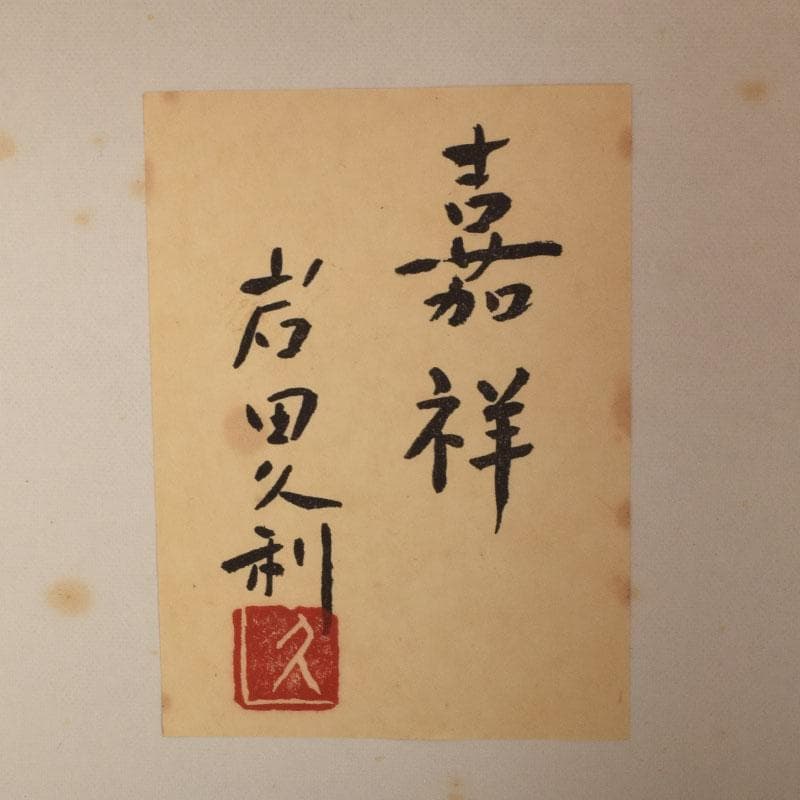 嘉祥
岩田久利
久